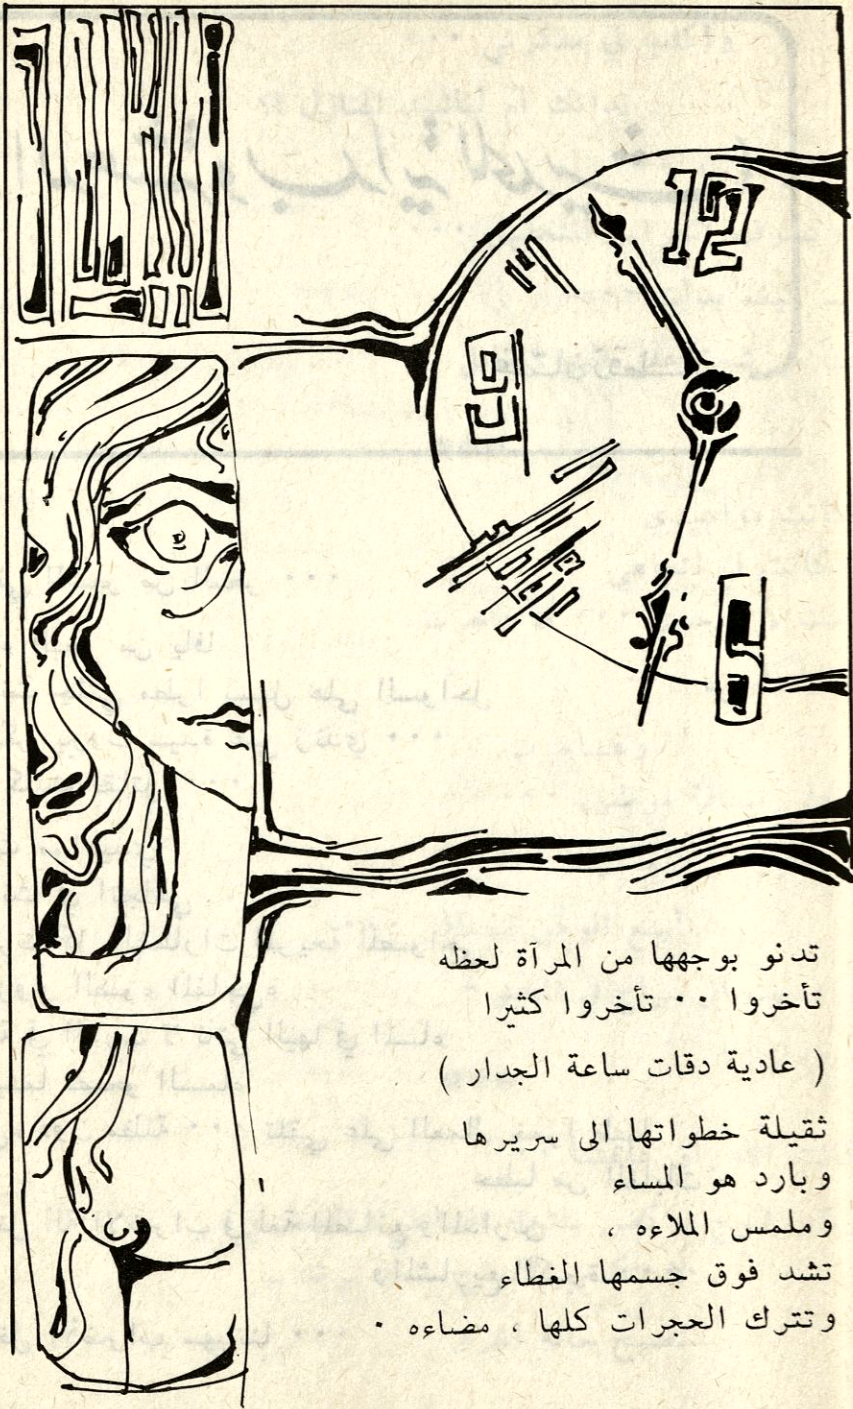 12
9
تدنو بوجهها من المرآة لحظه
تأخروا ٠٠ تأخروا كثيرا
( عادية دقات ساعة الجدار )
ثقيلة خطواتها الى سريرها
وبارد هو المساء
وملمس الملاءه ،
تشد فوق جسمها الغطاء
وتترك الحجرات كلها ، مضاءه ٠